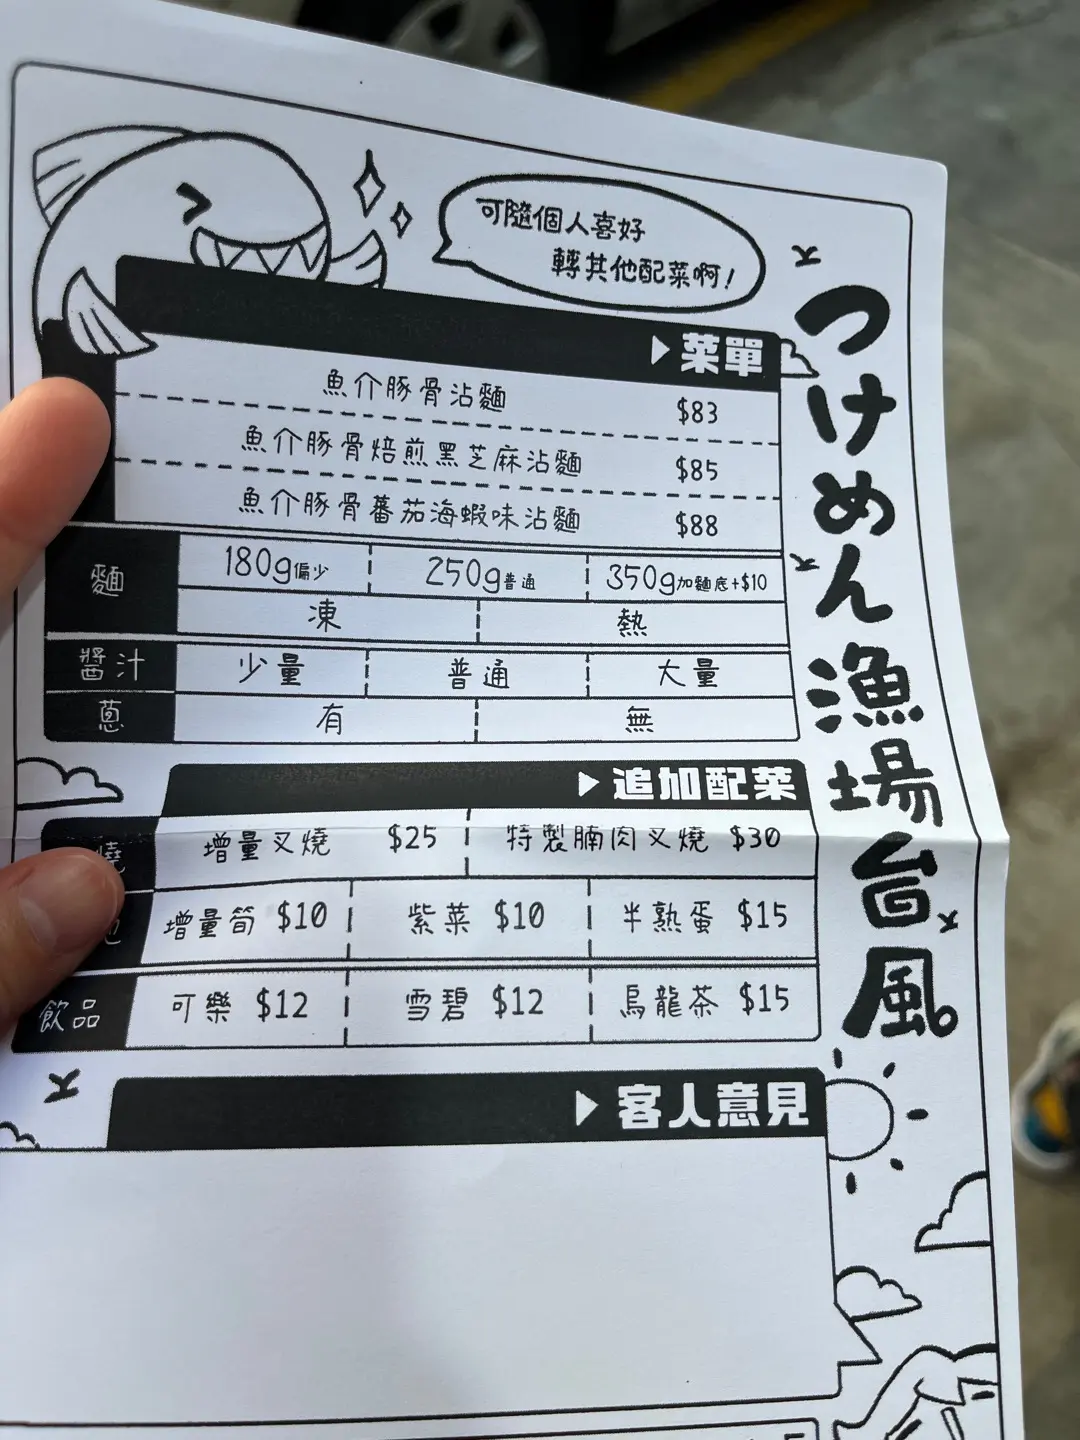 可隨個人喜好
轉其他配菜啊!
つけめん漁場台風
▶菜單
魚介豚骨沾麵 $83
魚介豚骨焙煎黑芝麻沾麵 $85
魚介豚骨蕃茄海蝦味沾麵 $88
麵 180g偏少 250g普通 350g加麵底+$10
凍 熱
醬汁 少量 普通 大量
蔥 有 無
▶追加配菜
燒 增量叉燒 $25 特製腩肉叉燒 $30
增量筍 $10 紫菜 $10 半熟蛋 $15
飲品 可樂 $12 雪碧 $12 烏龍茶 $15
▶客人意見